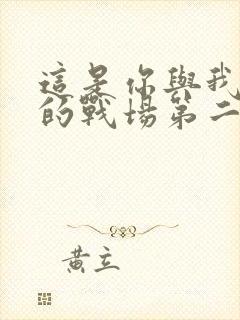 這是你與我
的戰場第二
黃立